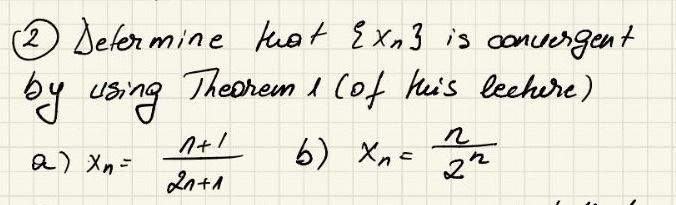 ② Determine that {xn} is convergent
by using Theorem 1 (of this lecture)
a) xn = n+1 / 2n+1 b) xn = n / 2^n